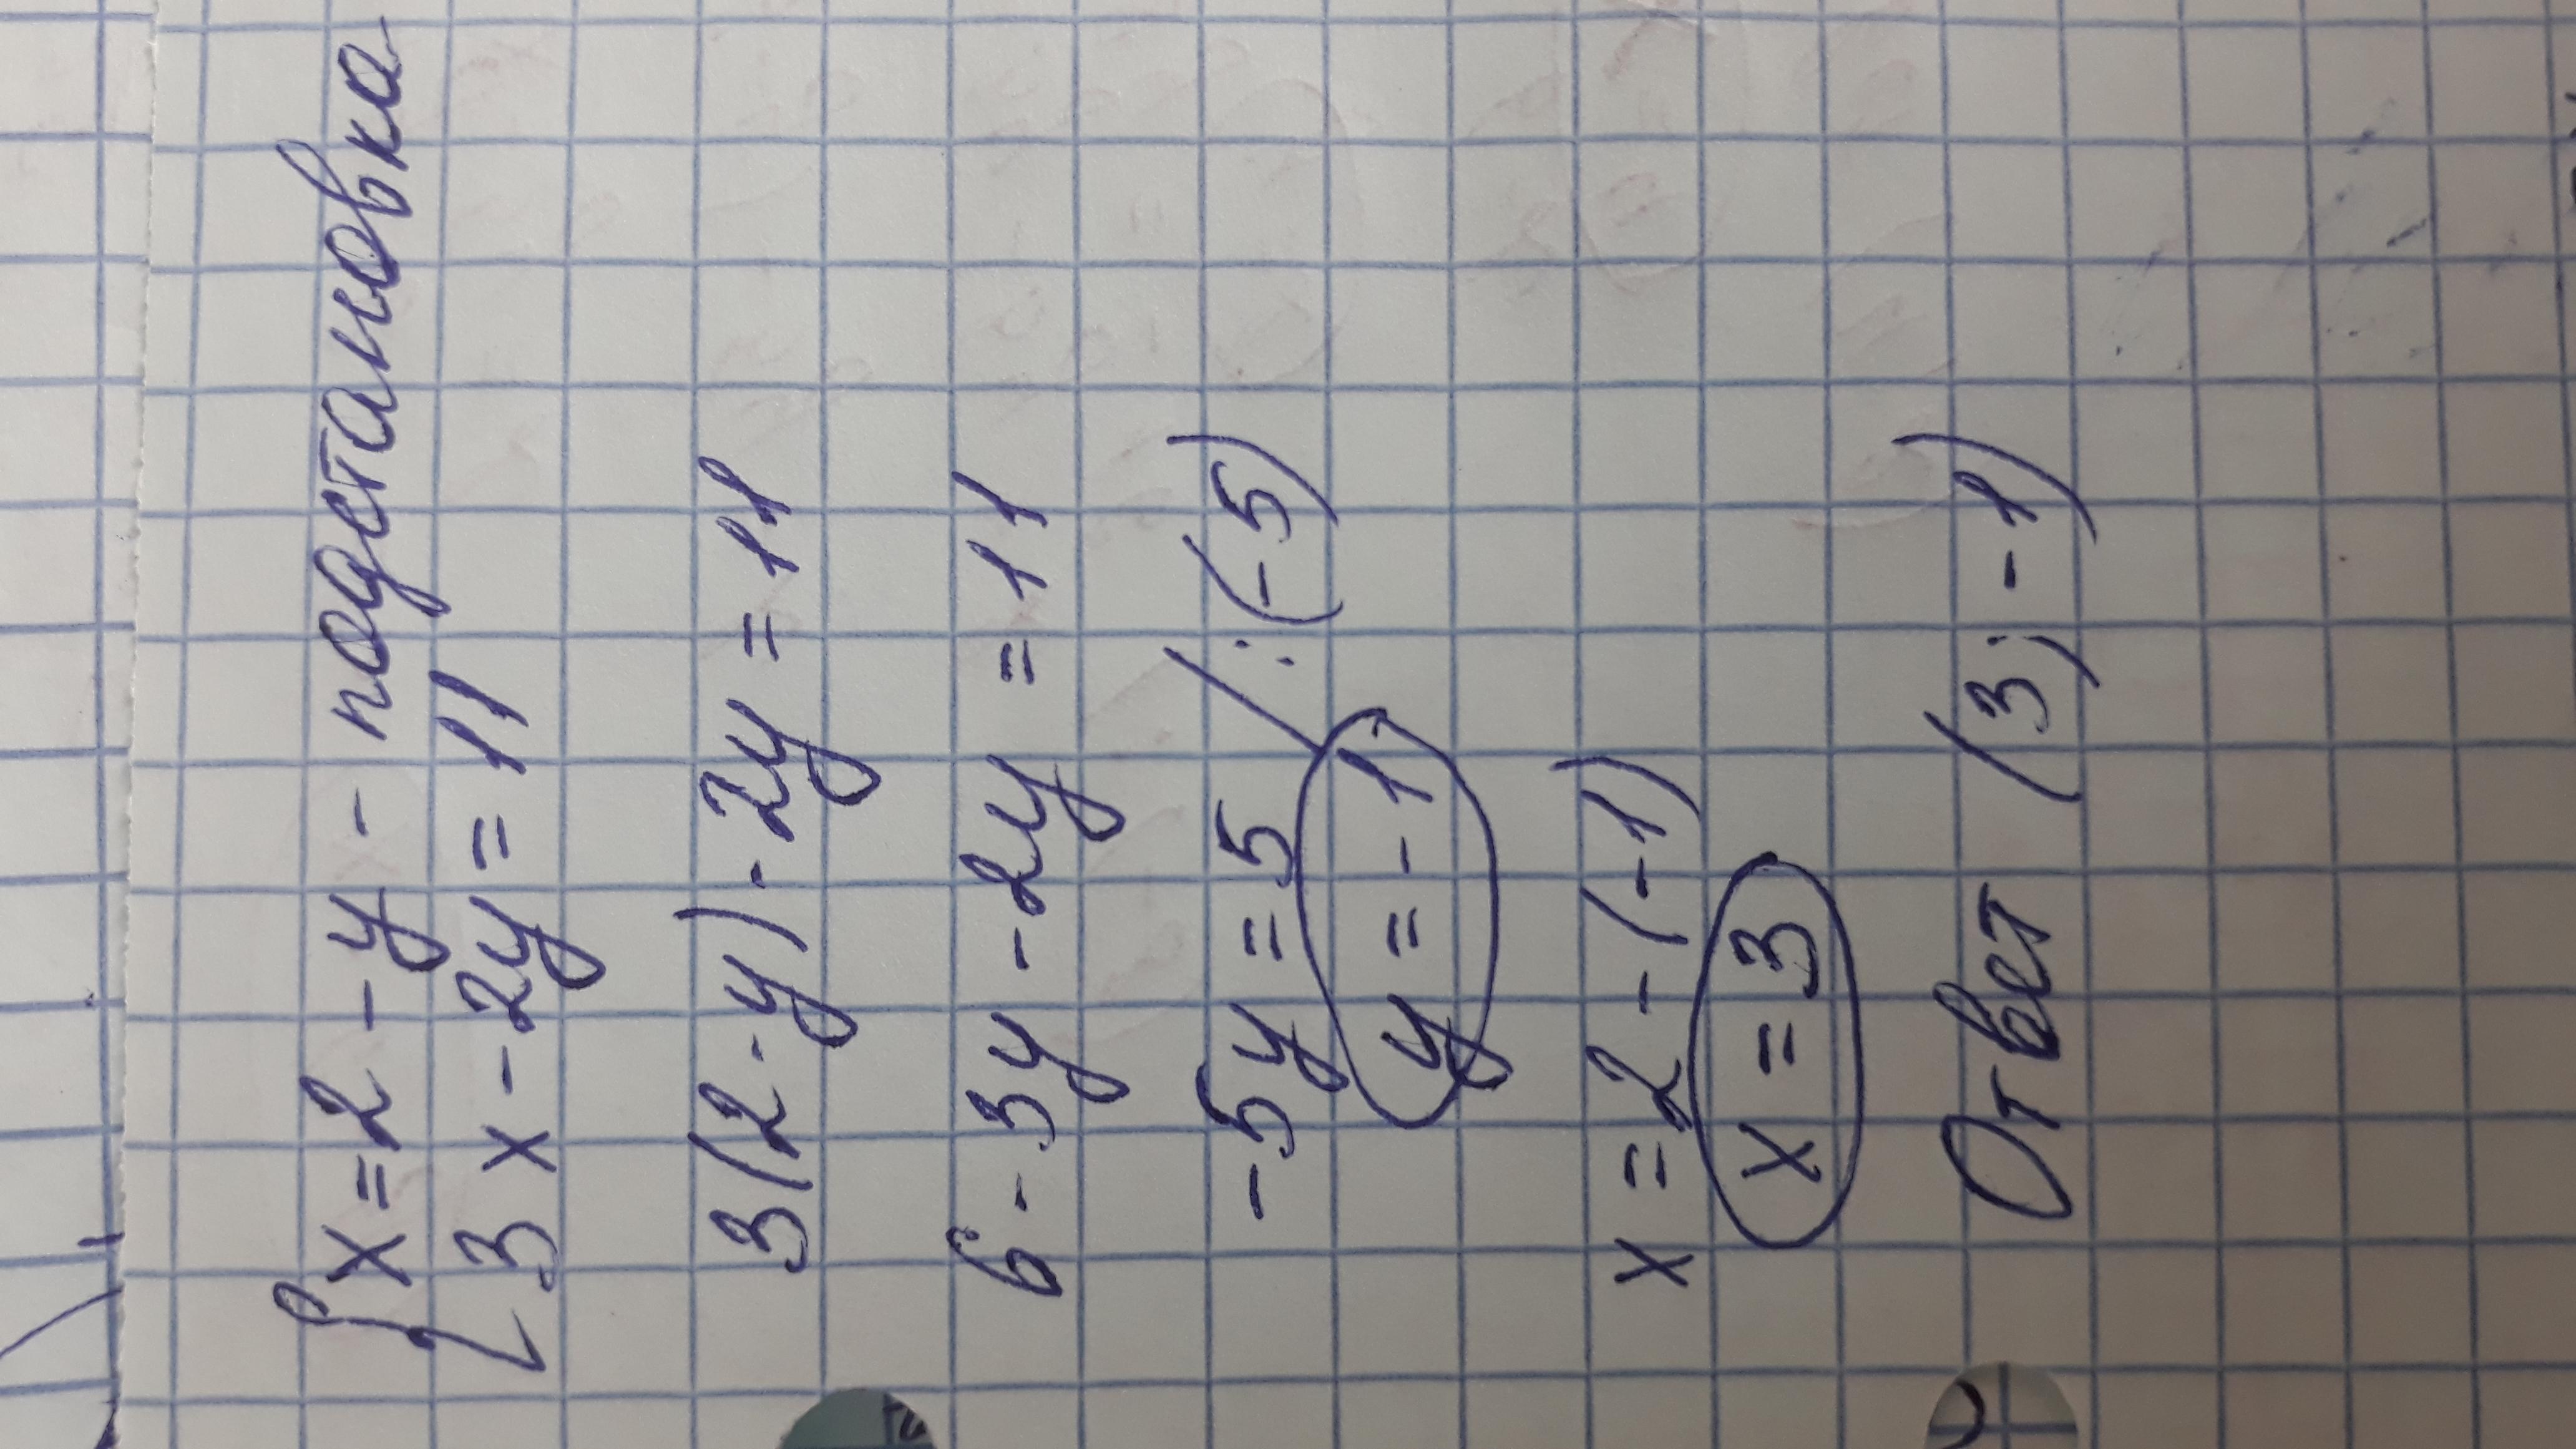 { x = 2 - y - подстановка
3x - 2y = 11
3(2 - y) - 2y = 11
6 - 3y - 2y = 11
-5y = 5 / : (-5)
y = -1
x = 2 - (-1)
x = 3
Ответ (3; -1)